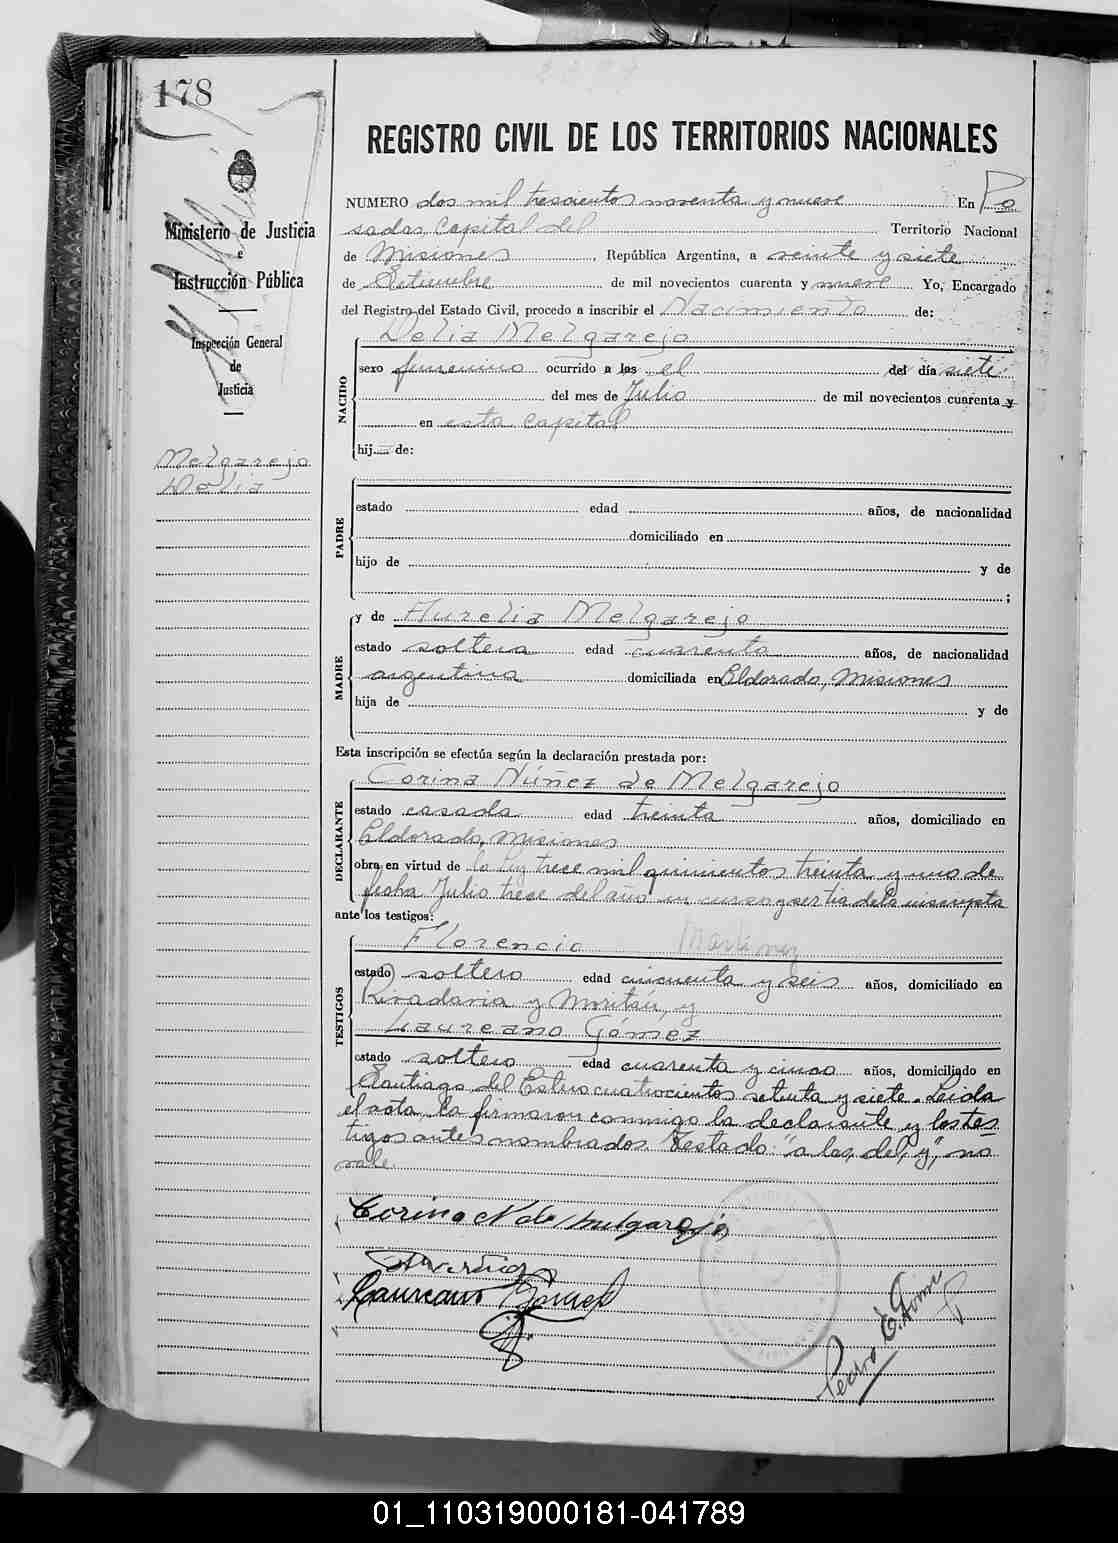 178
REGISTRO CIVIL DE LOS TERRITORIOS NACIONALES
Ministerio de Justicia
e
Instrucción Pública
Inspección General
de
Justicia
Melgarejo
Delia
NUMERO dos mil trescientos noventa y nueve En Po
sadas, Capital del Territorio Nacional
de Misiones, República Argentina, a veinte y siete
de Setiembre de mil novecientos cuarenta y nueve Yo, Encargado
del Registro del Estado Civil, procedo a inscribir el Nacimiento de:
NACIDO
Delia Melgarejo
sexo femenino ocurrido a las el del día siete
del mes de Julio de mil novecientos cuarenta y
en esta capital
hij de:
PADRE
estado edad años, de nacionalidad
domiciliado en
hijo de y de
;
MADRE
y de Aurelia Melgarejo
estado soltera edad cuarenta años, de nacionalidad
argentina domiciliada en Eldorado, Misiones
hija de y de
Esta inscripción se efectúa según la declaración prestada por:
DECLARANTE
Corina Núñez de Melgarejo
estado casada edad treinta años, domiciliado en
Eldorado, Misiones
obra en virtud de la ley trece mil quinientos treinta y uno de
fecha Julio trece del año en curso y ser tia de la inscripta
ante los testigos:
TESTIGOS
Florencio Martinez
estado soltero edad cincuenta y seis años, domiciliado en
Rivadavia y y
Laureano Gómez
estado soltero edad cuarenta y cinco años, domiciliado en
Santiago del Estero cuatrocientos setenta y siete. Leida
el acta, la firmaron conmigo la declarante y los tes
tigos antes nombrados. Testado: "a las, del, y", no
vale.
Corina N de Melgarejo
Laureano Gómez
Pedro E.
01_110319000181-041789